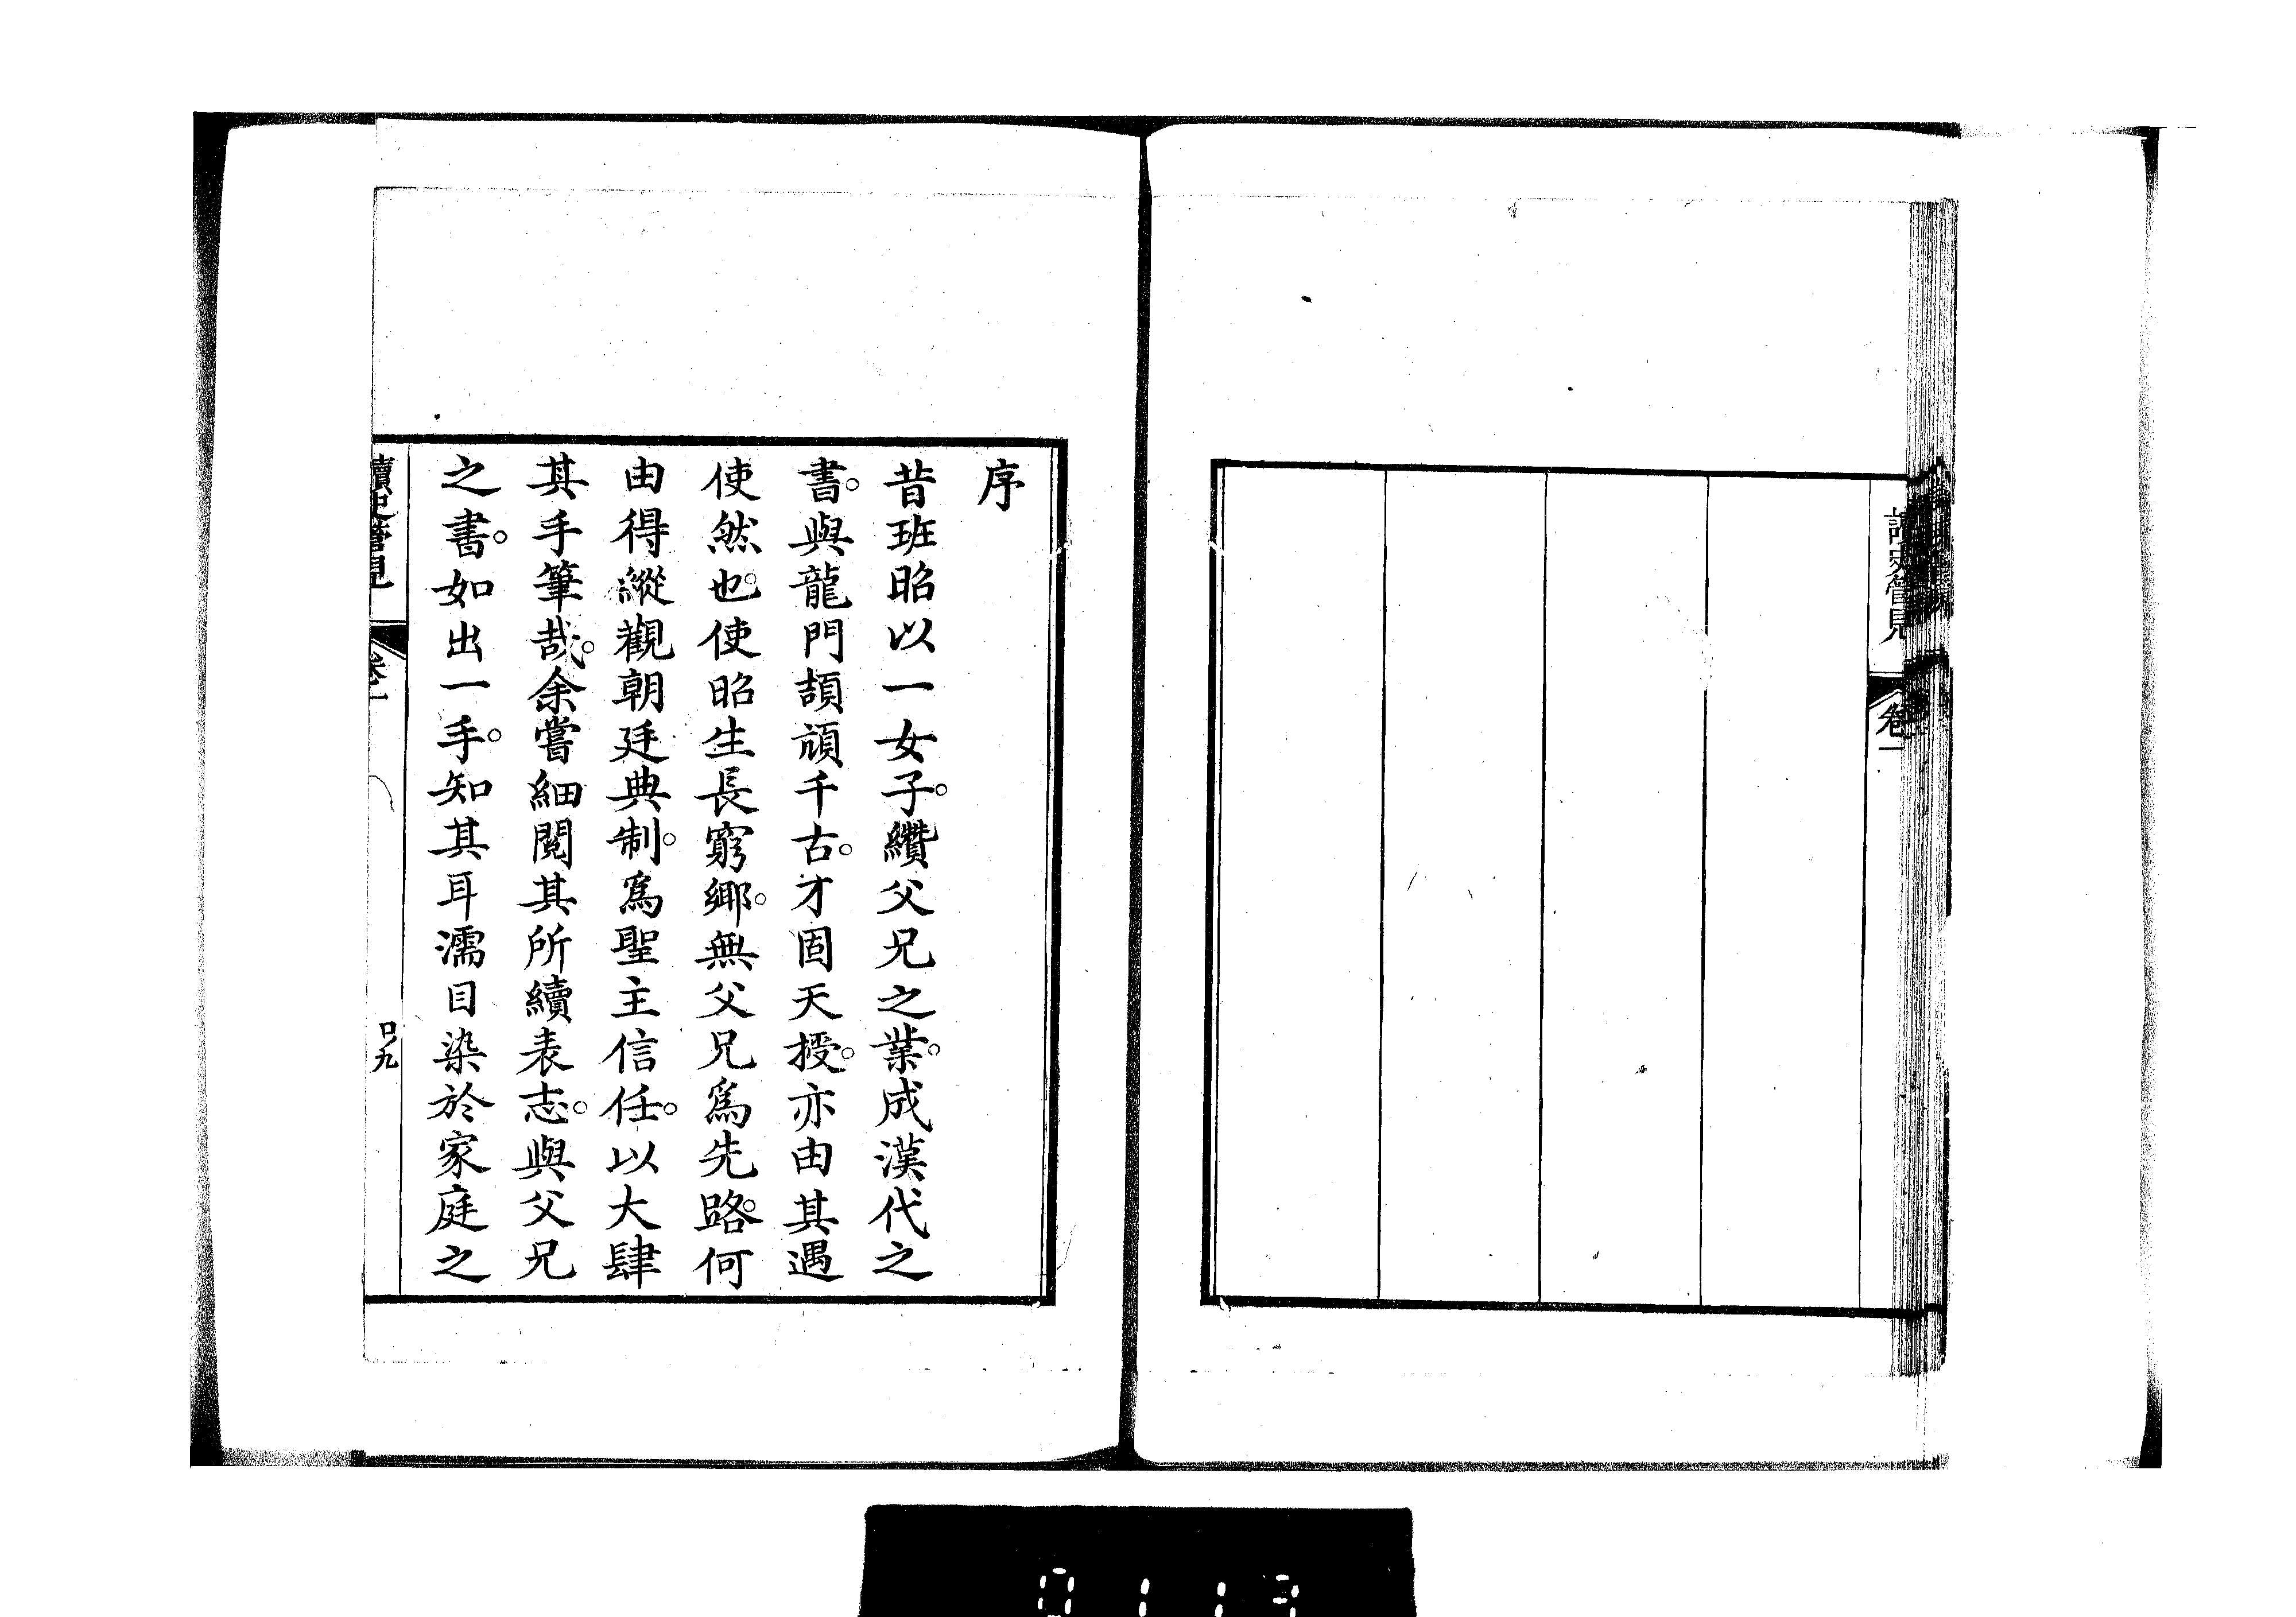 讀史管見
卷一
序
昔班昭以一女子。纘父兄之業。成漢代之
書。與龍門頡頏千古。才固天授。亦由其遇
使然也。使昭生長窮鄉。無父兄爲先路。何
由得縱觀朝廷典制。爲聖主信任。以大肆
其手筆哉。余嘗細閱其所續表志。與父兄
之書。如出一手。知其耳濡目染於家庭之
讀史管見
卷一
口九
0113